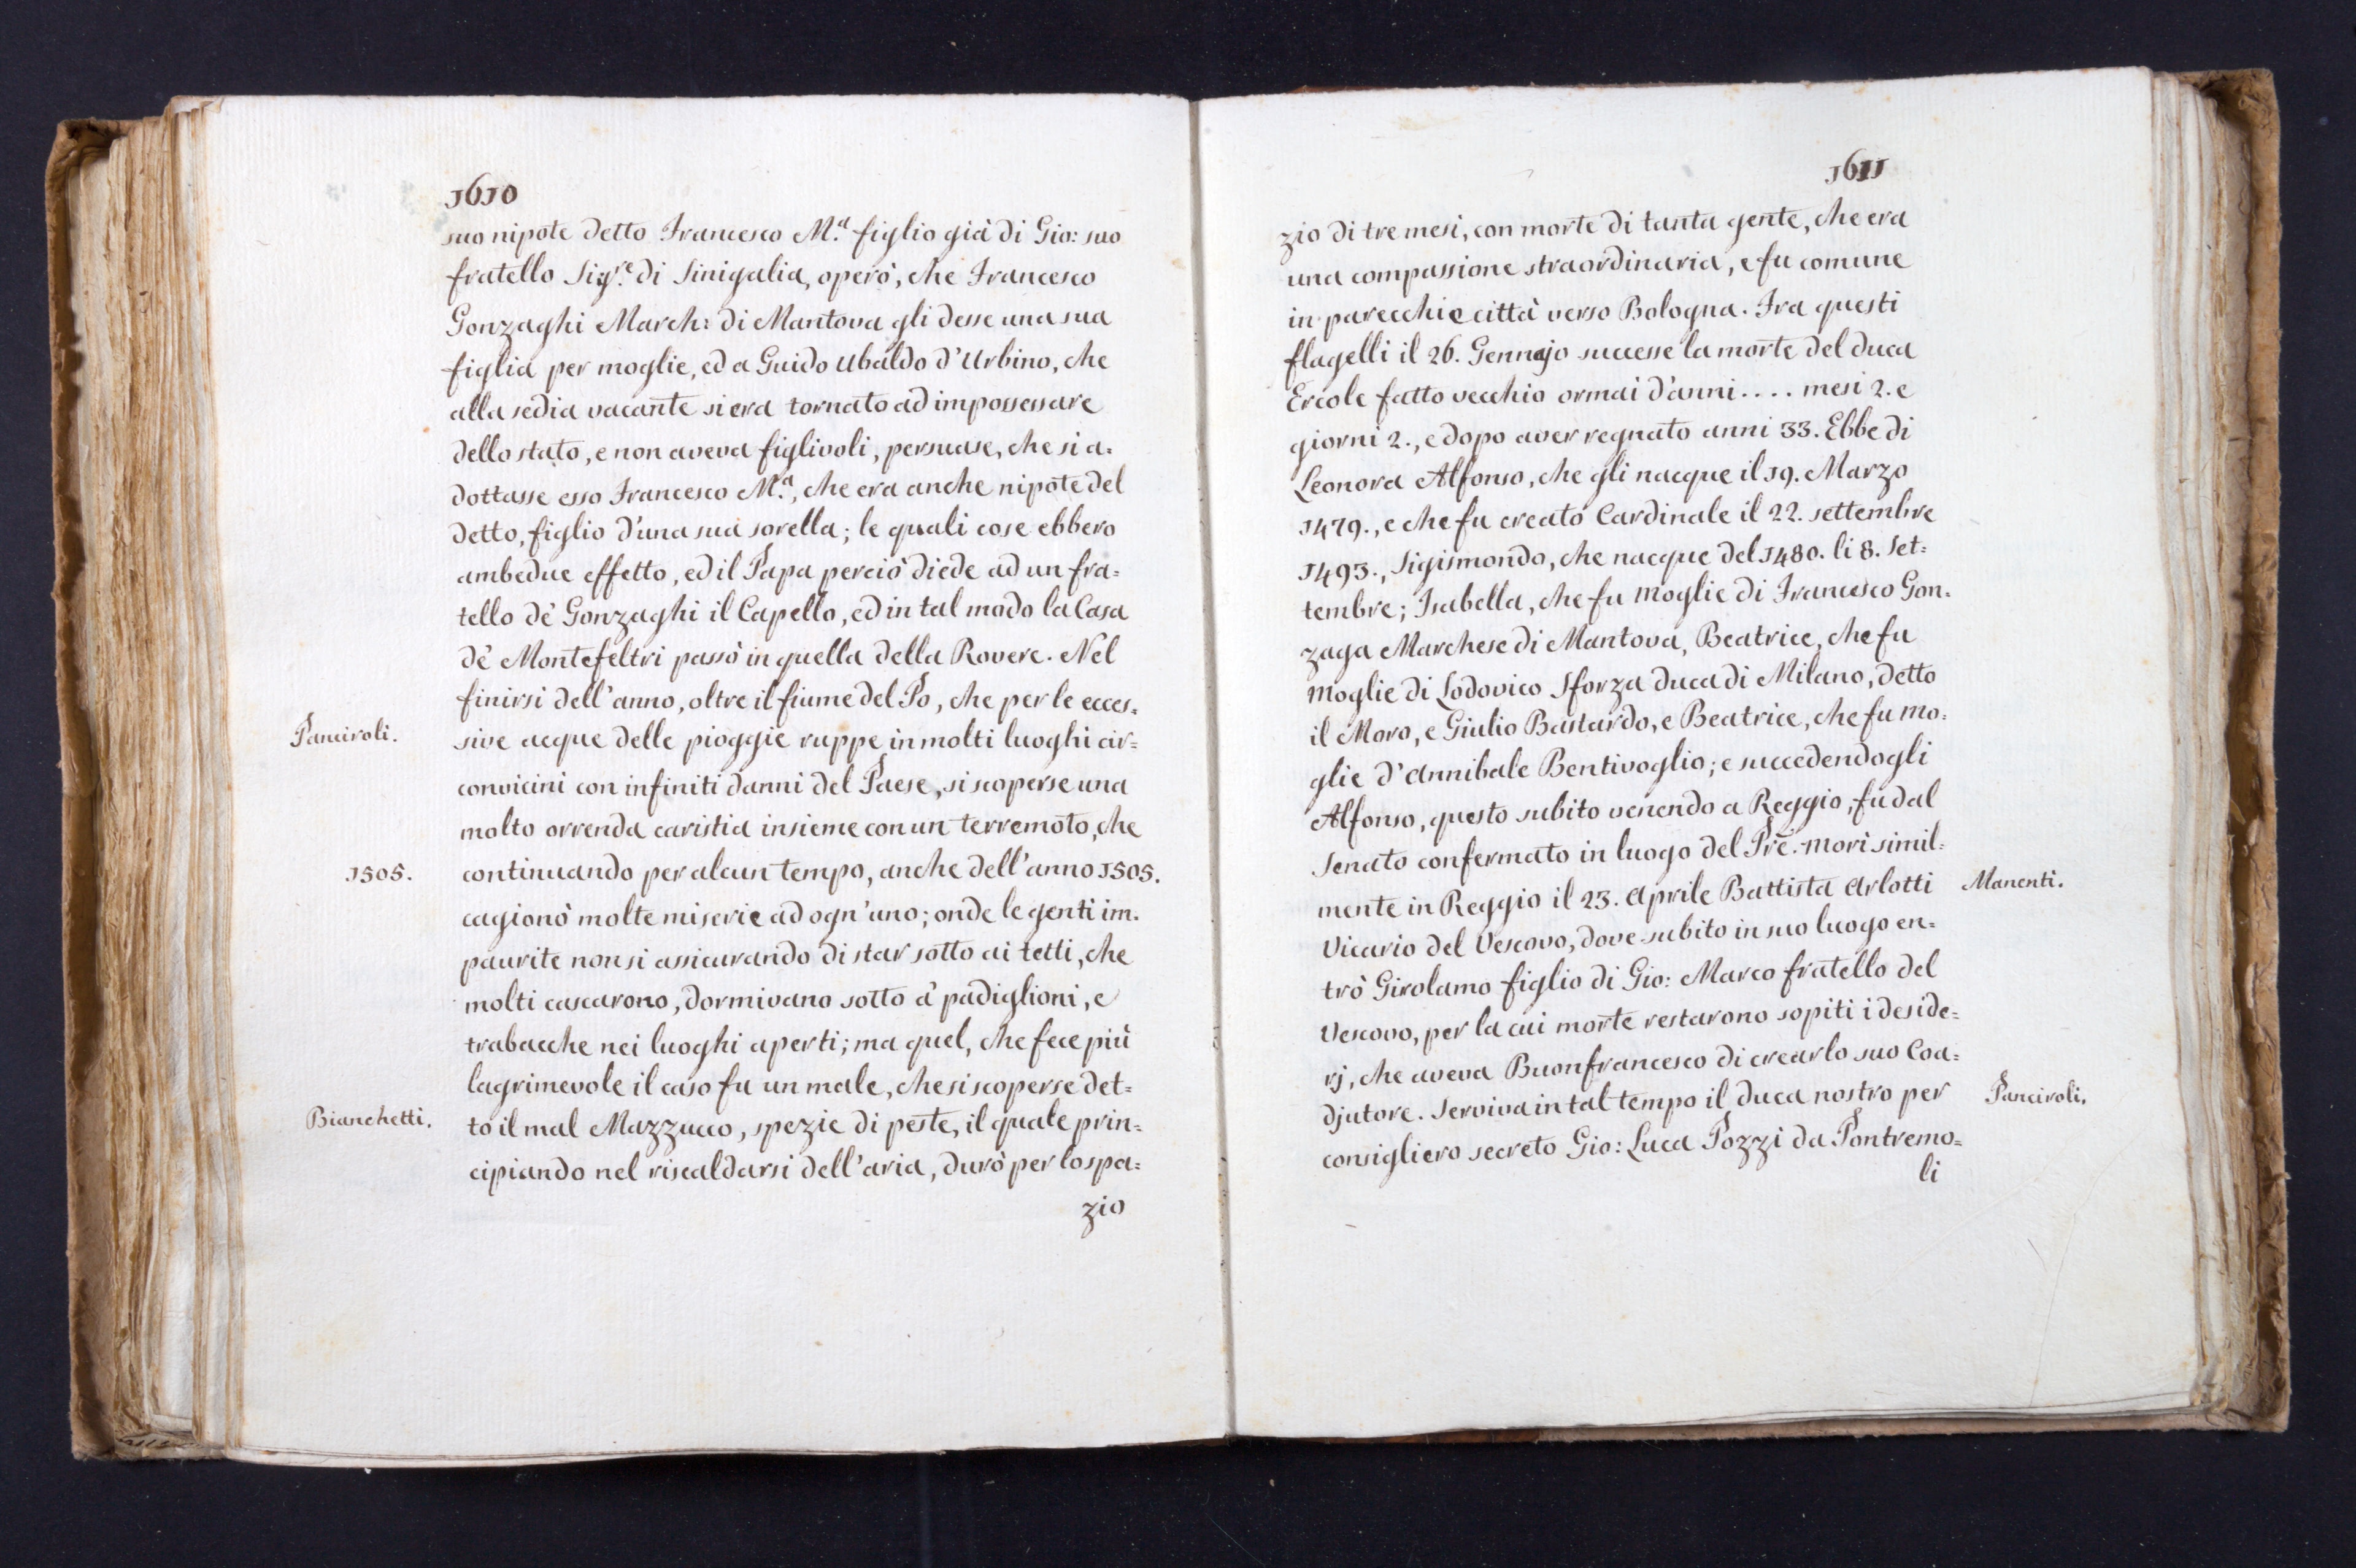 1610
suo nipote detto Francesco M.ª figlio già di Gio: suo
fratello Sig.re di Sinigalia, operò, che Francesco
Gonzaghi March: di Mantova gli desse una sua
figlia per moglie, ed a Guido Ubaldo d'Urbino, che
alla sedia vacante si era tornato ad impossessare
dello stato, e non aveva figlivoli, persuase, che si a=
dottasse esso Francesco M.ª, che era anche nipote del
detto, figlio d'una sua sorella; le quali cose ebbero
ambedue effetto, ed il Papa perciò diede ad un fra=
tello de' Gonzaghi il Capello, ed in tal modo la Casa
de' Montefeltri passò in quella della Rovere. Nel
finirsi dell'anno, oltre il fiume del Po, che per le ecces=
Panciroli.
sive acque delle pioggie ruppe in molti luoghi cir=
convicini con infiniti danni del Paese, si scoperse una
molto orrenda caristia insieme con un terremoto, che
1505.
continuando per alcun tempo, anche dell'anno 1505.
cagionò molte miserie ad ogn'uno; onde le genti im=
paurite non si assicurando di star sotto ai tetti, che
molti cascarono, dormivano sotto a' padiglioni, e
trabacche nei luoghi aperti; ma quel, che fece più
lagrimevole il caso fu un male, che si scoperse det=
Bianchetti.
to il mal Mazzucco, spezie di peste, il quale prin=
cipiando nel riscaldarsi dell'aria, durò per lo spa=
zio
1611
zio di tre mesi, con morte di tanta gente, che era
una compassione straordinaria, e fu comune
in parecchie città verso Bologna. Fra questi
flagelli il 26. Gennajo successe la morte del duca
Ercole fatto vecchio ormai d'anni .... mesi 2. e
giorni 2., e dopo aver regnato anni 33. Ebbe di
Leonora Alfonso, che gli nacque il 19. Marzo
1479., e che fu creato Cardinale il 22. settembre
1493., Sigismondo, che nacque del 1480. li 8. Set=
tembre; Isabella, che fu moglie di Francesco Gon=
zaga Marchese di Mantova, Beatrice, che fu
moglie di Lodovico Sforza duca di Milano, detto
il Moro, e Giulio Bastardo, e Beatrice, che fu mo=
glie d'Annibale Bentivoglio; e succedendogli
Alfonso, questo subito venendo a Reggio, fu dal
Senato confermato in luogo del Prē. Morì simil=
mente in Reggio il 23. Aprile Battista Arlotti
Manenti.
Vicario del Vescovo, dove subito in suo luogo en=
trò Girolamo figlio di Gio: Marco fratello del
Vescovo, per la cui morte restarono sopiti i deside=
rj, che aveva Buonfrancesco di crearlo suo Coa=
djutore. Serviva in tal tempo il duca nostro per
Panciroli.
consigliero secreto Gio: Luca Pozzi da Pontremo=
li